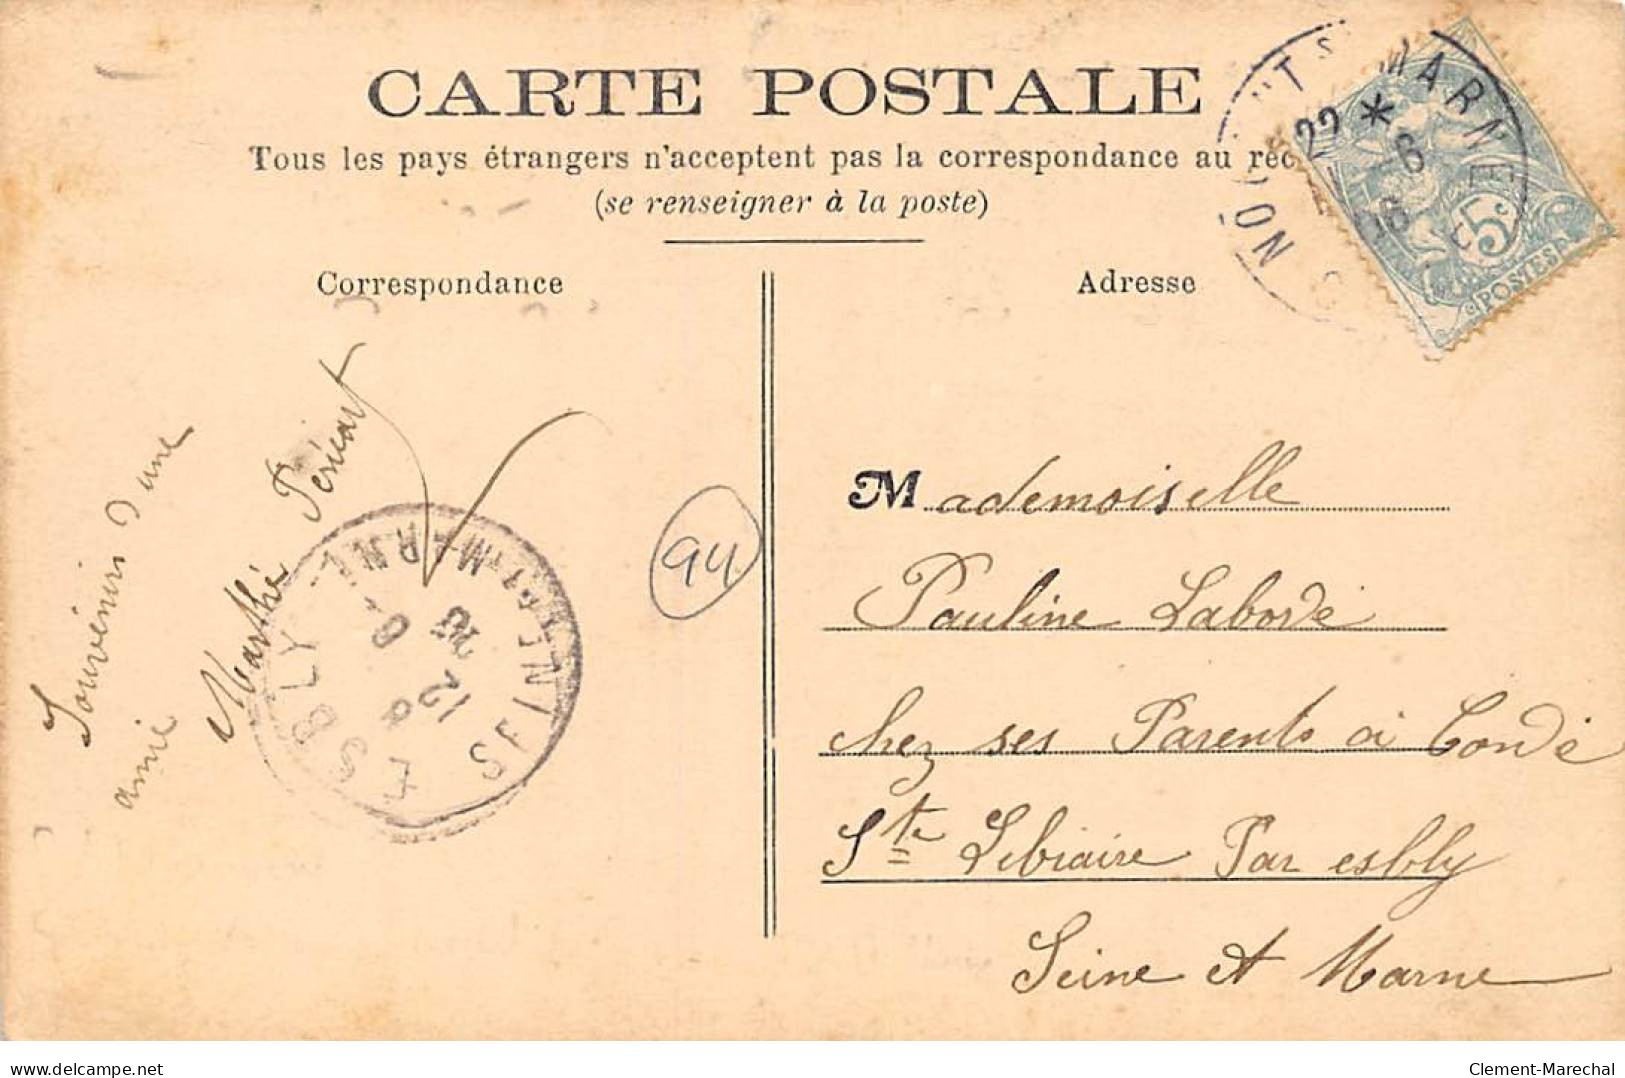 CARTE POSTALE
Tous les pays étrangers n'acceptent pas la correspondance au rec
(se renseigner à la poste)
Correspondance
Adresse
NOGENT S MARNE
22 * 6
06
5c
POSTES
Souvenirs d'une
amie
Marthe
94
ESBLY
SEINE-ET-MARNE
Mademoiselle
Pauline Laborde
chez ses Parents a Condé
Ste Lebiaire Par esbly
Seine et Marne
www.delcampe.net
Clement-Marechal